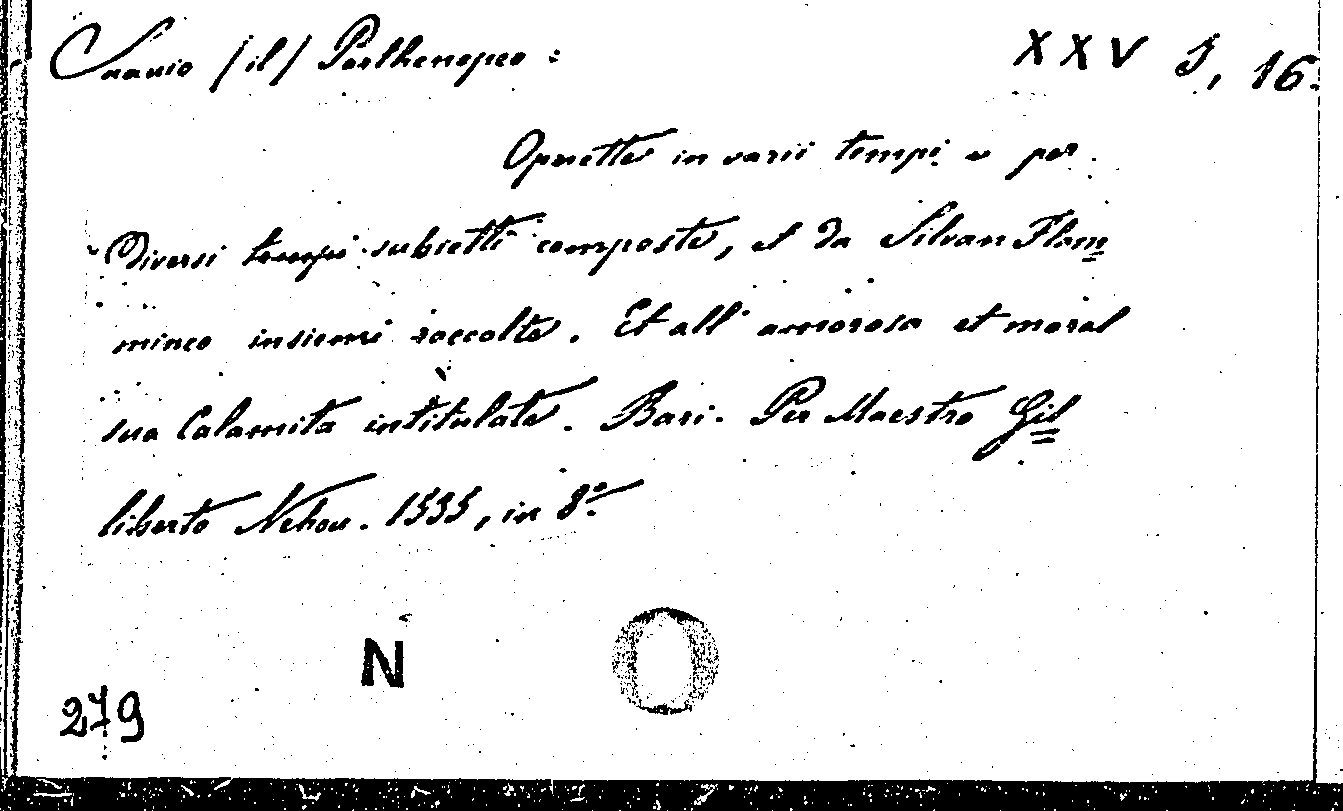 Suavio (il) Parthenopeo: XXV J, 16.
Operette in varii tempi e per
Diversi tempi subietti composte, et da Silvan Flam=
mineo insiemi raccolte. Et all' amorosa et moral
sua Calamita intitulate. Bari. Per Maestro Gil=
liberto Nehou. 1535, in 8º.
N
279